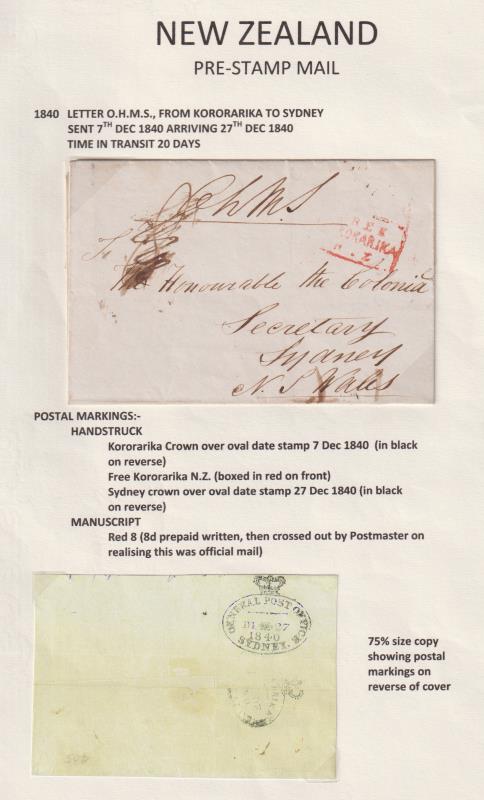 NEW ZEALAND
PRE-STAMP MAIL
1840 LETTER O.H.M.S., FROM KORORARIKA TO SYDNEY
SENT 7TH DEC 1840 ARRIVING 27TH DEC 1840
TIME IN TRANSIT 20 DAYS
O h M S
To
The Honourable the Colonial
Secretary
Sydney
N. S Wales
KORARIKA
N.Z.
POSTAL MARKINGS:-
HANDSTRUCK
Kororarika Crown over oval date stamp 7 Dec 1840 (in black
on reverse)
Free Kororarika N.Z. (boxed in red on front)
Sydney crown over oval date stamp 27 Dec 1840 (in black
on reverse)
MANUSCRIPT
Red 8 (8d prepaid written, then crossed out by Postmaster on
realising this was official mail)
GENERAL POST OFFICE
27
1840
SYDNEY.
75% size copy
showing postal
markings on
reverse of cover